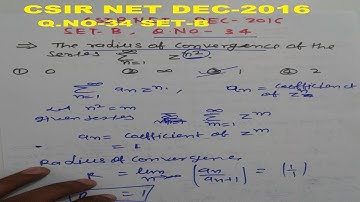 CSIR NET DEC-2016
Q.NO-34 SET-B
SET-B, Q.NO - 34
⇒ The radius of convergence of the
series ∑ n=1 ∞ z^n²
① 0 ② ∞ ③ 1 ④ 2
∑ n=1 ∞ an z^n, an = coefficient of z^n
let n² = m
given series ∑ m=1 ∞ z^m
an = coefficient of z^m
= 1
Radius of convergence
R = lim n→∞ (an/an+1) = (1/1)
R = 1